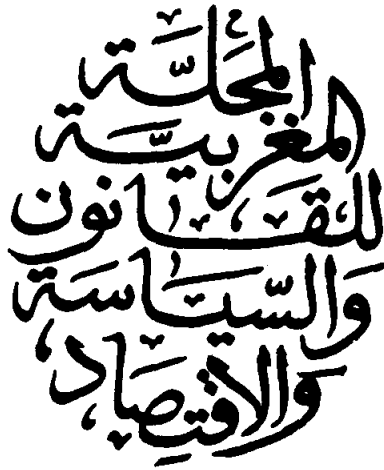 المجلّة
المغربيّة
للقانون
والسّياسة
والاقتصاد